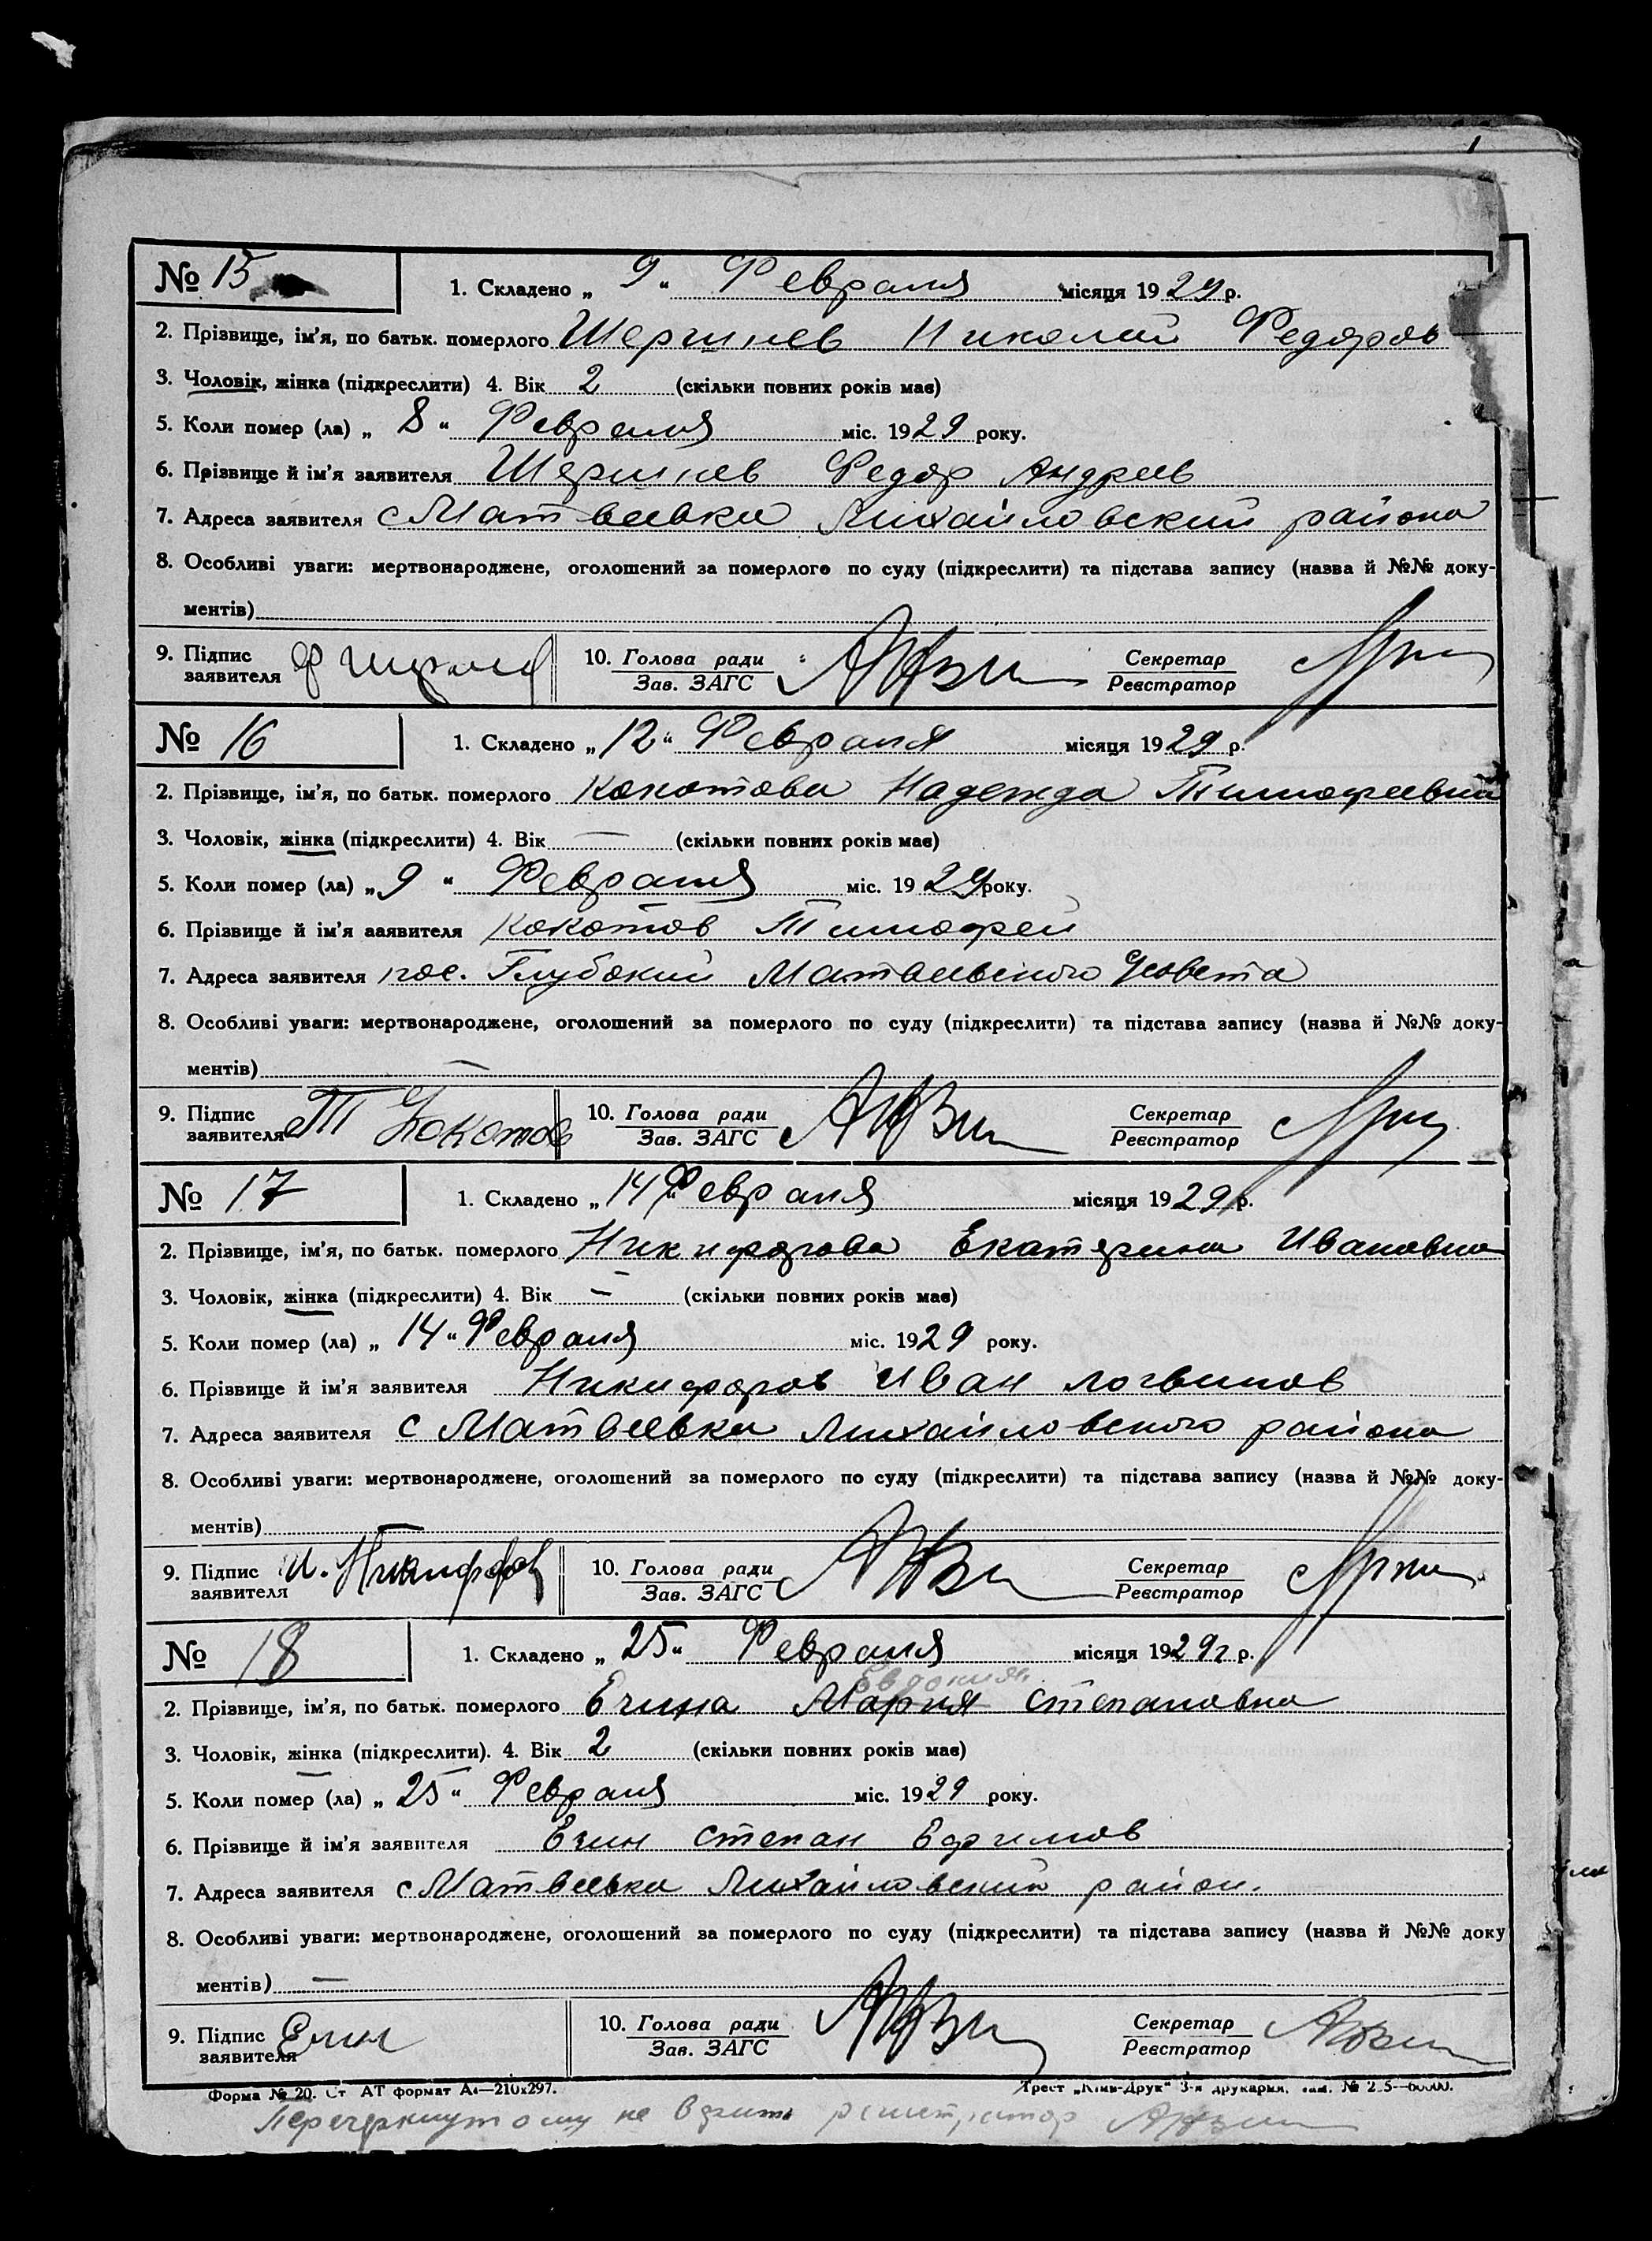 № 15 1. Складено „ 9 “ Февраля місяця 1929 р.
2. Прізвище, ім’я, по батьк. померлого Шершнев Николай Федоров
3. Чоловік, жінка (підкреслити) 4. Вік 2 (скільки повних років має)
5. Коли помер (ла) „ 8 “ Февраля міс. 1929 року.
6. Прізвище й ім’я заявителя Шершнев Федор Андреев
7. Адреса заявителя с Матвеевка Михайловский района
8. Особливі уваги: мертвонароджене, оголошений за померлого по суду (підкреслити) та підстава запису (назва й №№ доку-
ментів)
9. Підпис заявителя 10. Голова ради Зав. ЗАГС Секретар Реєстратор
№ 16 1. Складено „ 12 “ Февраля місяця 1929 р.
2. Прізвище, ім’я, по батьк. померлого Кокотова Надежда Тимофеевна
3. Чоловік, жінка (підкреслити) 4. Вік — (скільки повних років має)
5. Коли помер (ла) „ 9 “ Февраля міс. 1929 року.
6. Прізвище й ім’я заявителя Кокотов Тимофей
7. Адреса заявителя пос. Глубокий Матвеевского с/совета
8. Особливі уваги: мертвонароджене, оголошений за померлого по суду (підкреслити) та підстава запису (назва й №№ доку-
ментів) —
9. Підпис заявителя Т Кокотов 10. Голова ради Зав. ЗАГС Секретар Реєстратор
№ 17 1. Складено „ 14 “ Февраля місяця 1929 р.
2. Прізвище, ім’я, по батьк. померлого Никифорова Екатерина Ивановна
3. Чоловік, жінка (підкреслити) 4. Вік — (скільки повних років має)
5. Коли помер (ла) „ 14 “ Февраля міс. 1929 року.
6. Прізвище й ім’я заявителя Никифоров Иван Логвинов
7. Адреса заявителя с Матвеевка Михайловского района
8. Особливі уваги: мертвонароджене, оголошений за померлого по суду (підкреслити) та підстава запису (назва й №№ доку-
ментів) —
9. Підпис заявителя И. Никифоров 10. Голова ради Зав. ЗАГС Секретар Реєстратор
№ 18 1. Складено „ 25 “ Февраля місяця 1929 г р.
Евдокия
2. Прізвище, ім’я, по батьк. померлого Ечина Мария Степановна
3. Чоловік, жінка (підкреслити). 4. Вік 2 (скільки повних років має)
5. Коли помер (ла) „ 25 “ Февраля міс. 1929 року.
6. Прізвище й ім’я заявителя Ечин Степан Ефимов
7. Адреса заявителя с Матвеевка Михайловский район.
8. Особливі уваги: мертвонароджене, оголошений за померлого по суду (підкреслити) та підстава запису (назва й №№ доку
ментів) —
9. Підпис заявителя Ечин 10. Голова ради Зав. ЗАГС Секретар Реєстратор
Форма № 20. Ст АТ формат А4—210x297. Трест „Київ-Друк“ 3-я друкарня, зам. №
Перечеркнутому не верить регистратор